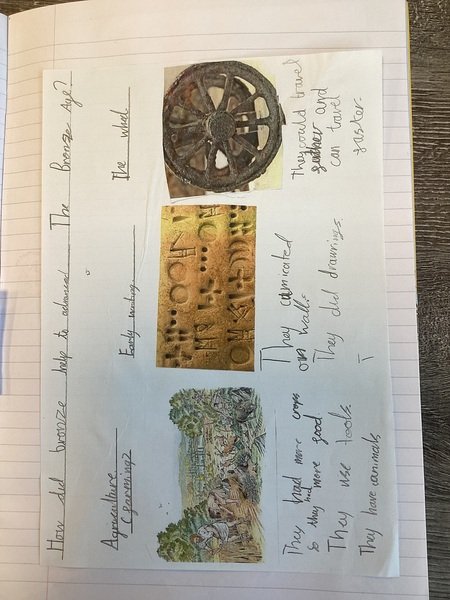 How did bronze help to advanced The Bronze Age?
Agriculture
(farming)
They had more crops
so they had more good.
They use tools
They have canimals
Early writing
They camicated
on walls
They did drawings
The wheel
They could travel
and
can travel
faster.